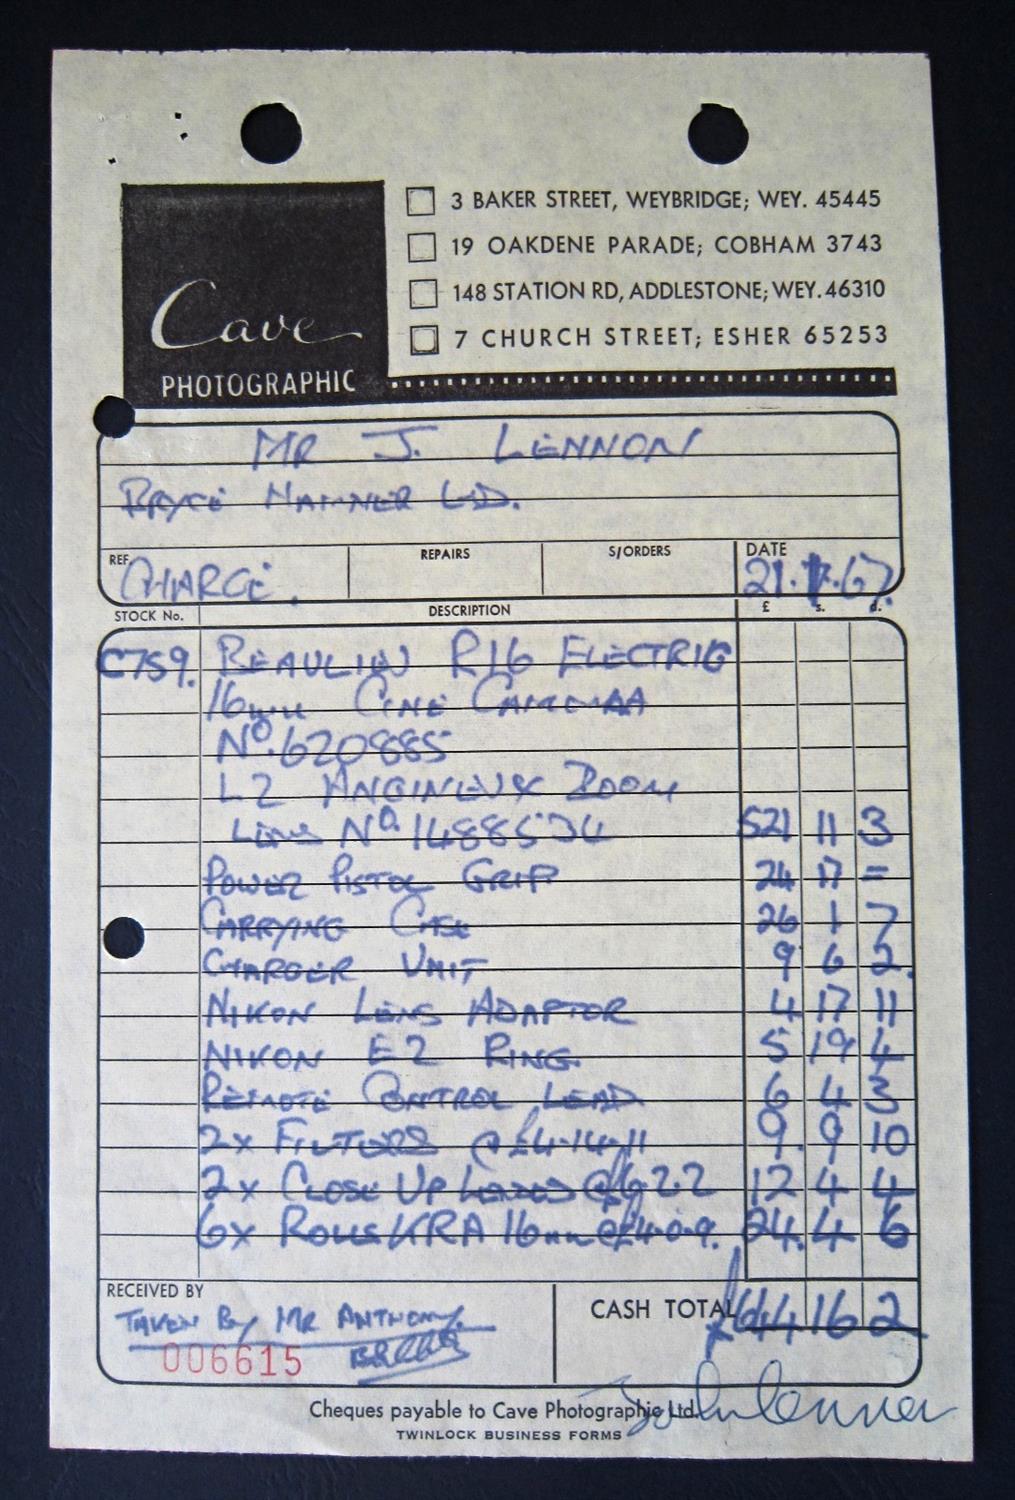 Cave
PHOTOGRAPHIC
3 BAKER STREET, WEYBRIDGE; WEY. 45445
19 OAKDENE PARADE; COBHAM 3743
148 STATION RD, ADDLESTONE; WEY. 46310
7 CHURCH STREET; ESHER 65253
MR J. LENNON
BRYCE HANMER LTD.
REF. CHARGE. REPAIRS S/ORDERS DATE 21. .67.
STOCK No. DESCRIPTION £ s. d.
C759. BEAULIEU R16 ELECTRIC
16mm CINE CAMERA
No. 620885
L2 ANGINEUX ZOOM
LENS No. 521 11 3
POWER PISTOL GRIP 24 17 =
CARRYING CASE 26 1 7
CHARGER UNIT 9 6 2.
NIKON LENS ADAPTOR 4 17 11
NIKON E2 RING 5 19 4
REMOTE CONTROL LEAD 6 4 3
2x FILTERS @ £4-14-11 9. 9 10
2x CLOSE UP LENSES @ £6 2 2 12 4 4
6x ROLLS KRA 16mm @ £4-0-9. 24. 4 6
RECEIVED BY
TAKEN BY MR ANTHONY.
006615
CASH TOTAL £644 16 2
Cheques payable to Cave Photographic Ltd.
John Lennon
TWINLOCK BUSINESS FORMS